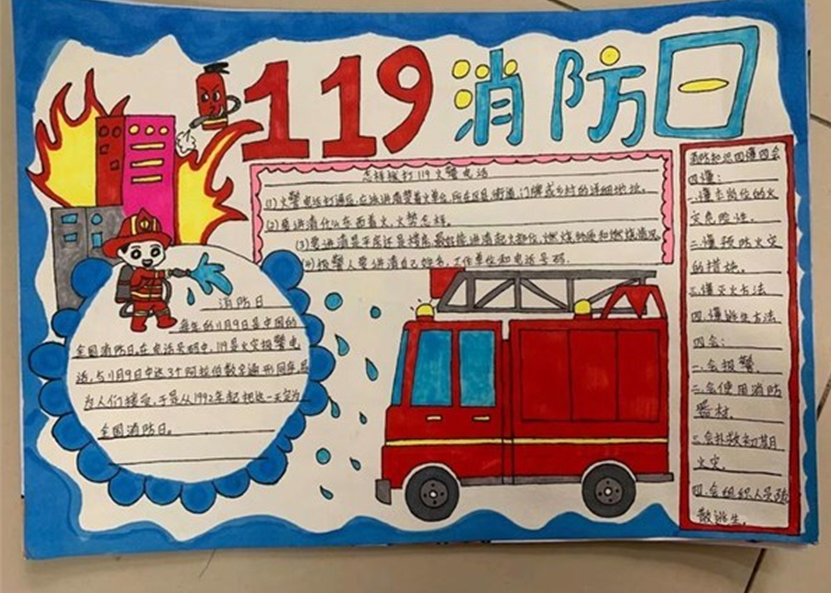 119消防日
怎样拨打119火警电话
(1)火警电话打通后,应该讲清楚着火单位,所在区县、街道、门牌或乡村的详细地址。
(2)要讲清什么东西着火,火势怎样。
(3)要讲清是平房还是楼房,最好能讲清起火部位,燃烧物质和燃烧情况。
(4)报警人要讲清自己姓名、工作单位和电话号码.
消防日
每年的11月9日是中国的
全国消防日。在电话号码中,119是火灾报警电
话,与11月9日中这3个阿拉伯数字
为人们接受,于是从1992年起把这一天定为
全国消防日。
消防知识四懂四会
四懂:
一.懂本岗位的火
灾危险性。
二.懂预防火灾
的措施。
三.懂灭火方法
四.懂逃生方法
四会:
一.会报警.
二.会使用消防
器材.
三.会扑救初期
火灾.
四.会组织人员疏
散逃生.